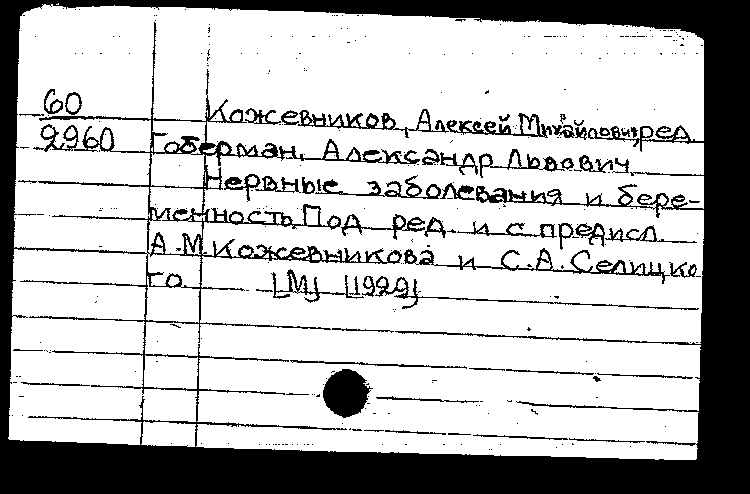 60
9960
Кожевников, Алексей Михайлович, ред.
Гоберман, Александр Львович.
Нервные заболевания и бере-
менность. Под ред. и с предисл.
А.М. Кожевникова и С.А. Селицко
го. [М] [1929]